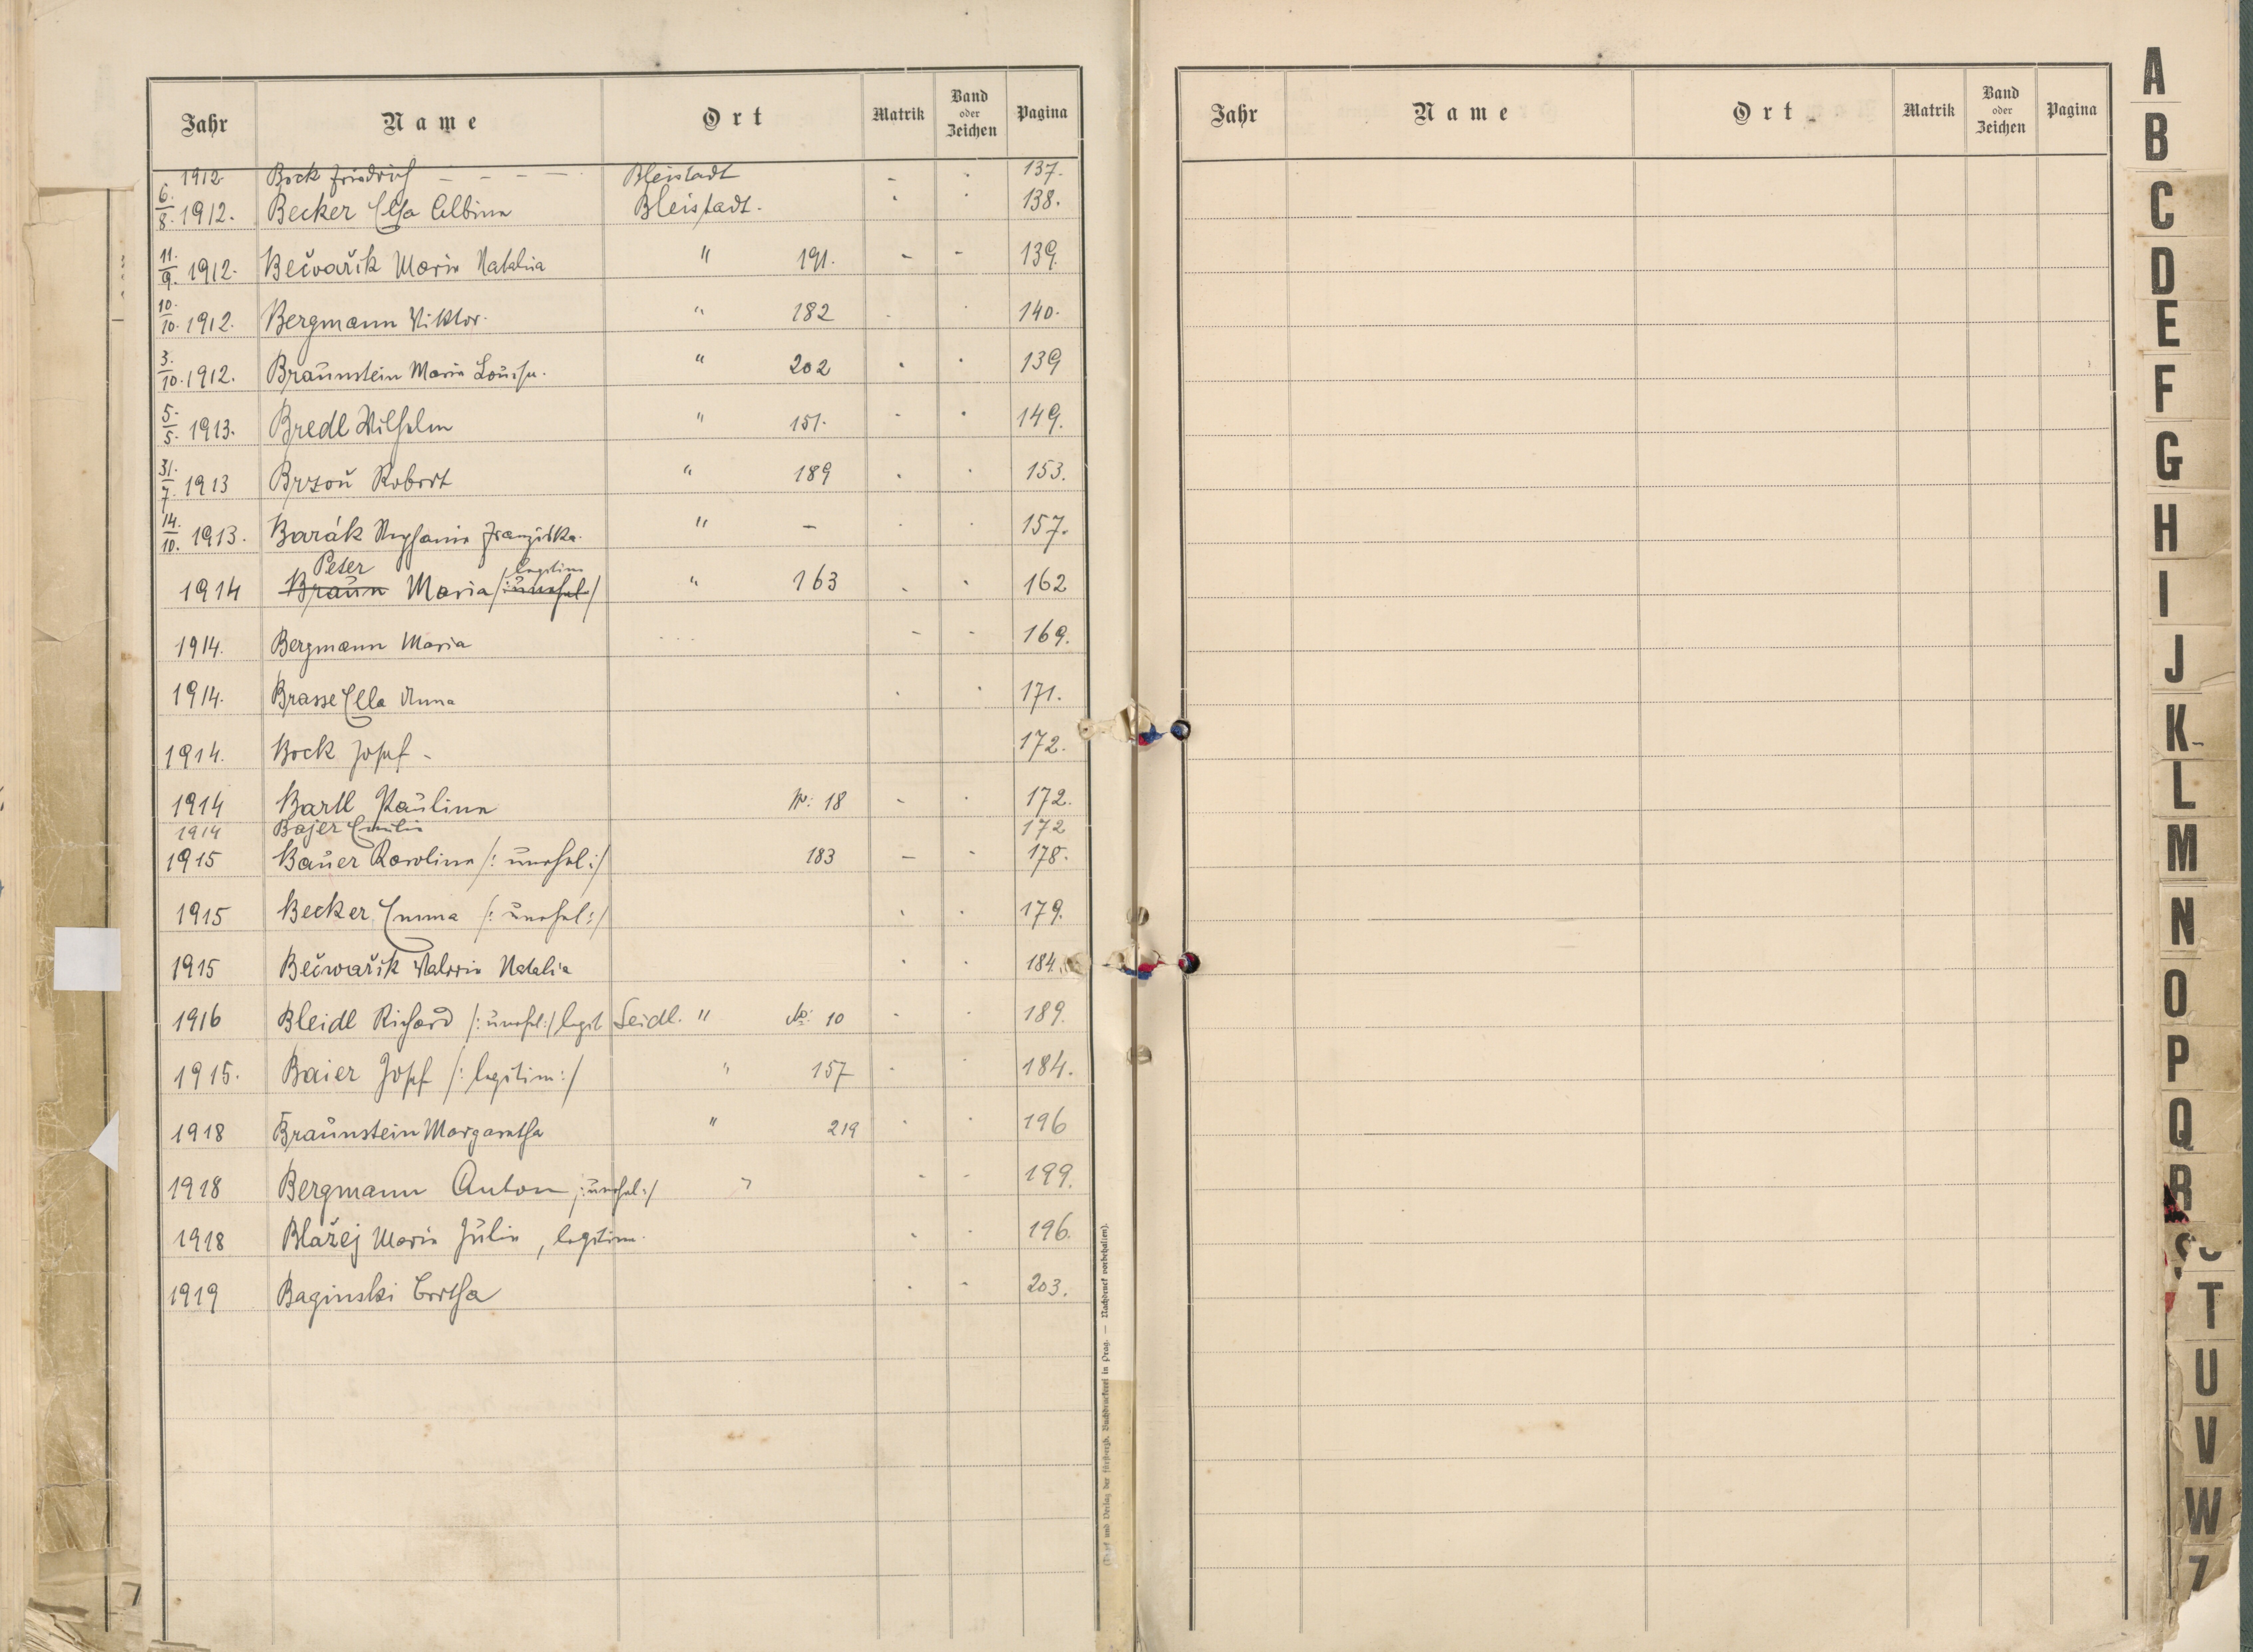 Jahr Name Ort Matrik Band oder Zeichen Pagina
1912. Bock Friedrich - - - - Bleistadt - . 137.
6./8. 1912. Becker Elsa Albina Bleistadt. . . 138.
11./9. 1912. Bečvařík Maria Natalia " 191. - - 139.
10./10. 1912. Bergmann Viktor. " 182 . . 140.
3./10. 1912. Braunstein Maria Louise. " 202 . . 139
5./5. 1913. Bredl Wilhelm " 151. - . 149.
31./7. 1913 Brzoň Robert " 189 . . 153.
14./10. 1913. Barák Stephanie Franziska. " - . . 157.
Peter legitim
1914 Braun Maria /:unehel:/ " 163 . . 162
1914. Bergmann Maria - - 169.
1914. Brasse Ella Anna . . 171.
1914. Bock Josef - 172.
1914 Bartl Paulina Nr: 18 - . 172.
1914 Bajer Emilie 172
1915 Bauer Karolina /:unehel:/ 183 - - 178.
1915 Becker Emma /:unehel:/ . . 179.
1915 Bečwařík Valerie Natalia . . 184.
1916 Bleidl Richard /:unehel:/ legit Seidl. " No: 10 - . 189.
1915. Baier Josef /:legitim:/ " 157 . . 184.
1918 Braunstein Margaretha " 219 . . 196
1918 Bergmann Anton /:unehel:/ " - - 199.
1918 Blažej Maria Julie, legitim. . . 196.
1919 Baginski Bertha . - 203.
(Druck und Verlag der fürsterzb. Buchdruckerei in Prag. — Nachdruck vorbehalten).
Jahr Name Ort Matrik Band oder Zeichen Pagina
A
B
C
D
E
F
G
H
I
J
K
L
M
N
O
P
Q
R
S
T
U
V
W
Z